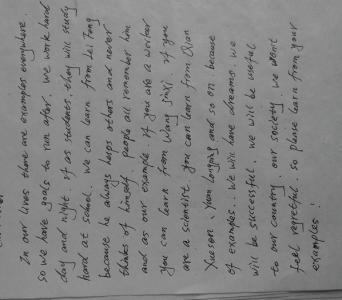 In our lives there are examples everywhere
so we have goals to run after. we work hard
day and night. if as students, they will study
hard at school. We can learn from Lei Feng
because he always helps others and never
thinks of himself. people all remember him
and as our example. if you are a worker
you can learn from Wang Jinxi. if you
are a scientist you can learn from Qian
Xuesen, Yuan Longping and so on because
of examples.. We will have dreams. we
will be successful. we will be useful
to our country. our society. we won't
feel regretful. so please learn from your
examples!